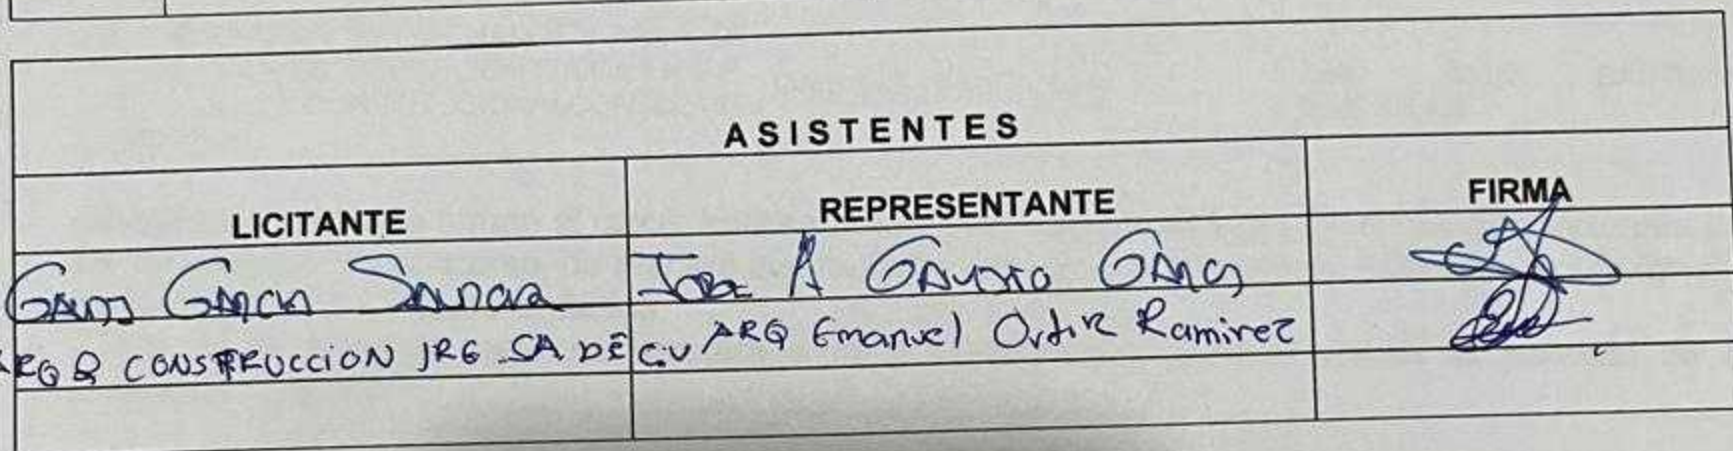 ASISTENTES
LICITANTE REPRESENTANTE FIRMA
García Jose A García
ARQ & CONSTRUCCION JRG SA DE CV ARQ Emanuel Ortiz Ramirez